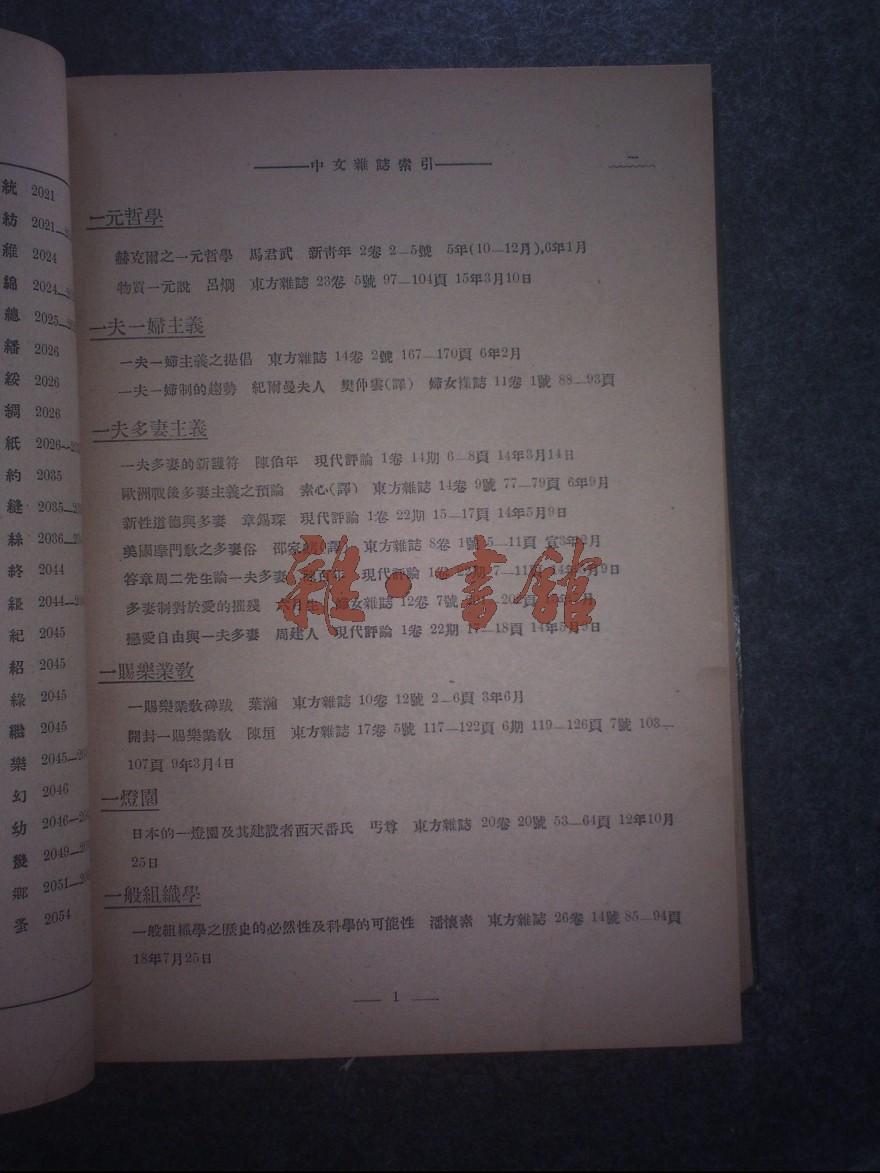 統 2021
紡 2021—
維 2024
綿 2024—
總 2025—
繙 2026
綏 2026
綢 2026
紙 2026—
約 2035
縫 2035—
絲 2036—
終 2044
2044—
紀 2045
紹 2045
綠 2045
繼 2045
樂 2045—
幻 2046
幼 2046—
幾 2049—
鄉 2051—
蚤 2054
中文雜誌索引
一
一元哲學
赫克爾之一元哲學 馬君武 新靑年 2卷 2—5號 5年(10—12月),6年1月
物質一元說 呂烱 東方雜誌 23卷 5號 97—104頁 15年3月10日
一夫一婦主義
一夫一婦主義之提倡 東方雜誌 14卷 2號 167—170頁 6年2月
一夫一婦制的趨勢 紀爾曼夫人 樊仲雲(譯) 婦女雜誌 11卷 1號 88—93頁
一夫多妻主義
一夫多妻的新護符 陳伯年 現代評論 1卷 14期 6—8頁 14年3月14日
歐洲戰後多妻主義之預論 素心(譯) 東方雜誌 14卷 9號 77—79頁 6年9月
新性道德與多妻 章錫琛 現代評論 1卷 22期 15—17頁 14年5月9日
美國摩門敎之多妻俗 邵家 (譯) 東方雜誌 8卷 1號 5—11頁 宣3年2月
答章周二先生論一夫多妻 百年 現代評論 1卷 7—11頁 14年 月9日
多妻制對於愛的摧殘 婦女雜誌 12卷 7號
戀愛自由與一夫多妻 周建人 現代評論 1卷 22期 17—18頁 14年5月9日
一賜樂業敎
一賜樂業敎碑跋 葉瀚 東方雜誌 10卷 12號 2—6頁 3年6月
開封一賜樂業敎 陳垣 東方雜誌 17卷 5號 117—122頁 6期 119—126頁 7號 103—
107頁 9年3月4日
一燈園
日本的一燈園及其建設者西天香氏 丏尊 東方雜誌 20卷 20號 53—64頁 12年10月
25日
一般組織學
一般組織學之歷史的必然性及科學的可能性 潘懷素 東方雜誌 26卷 14號 85—94頁
18年7月25日
1
雜·書館